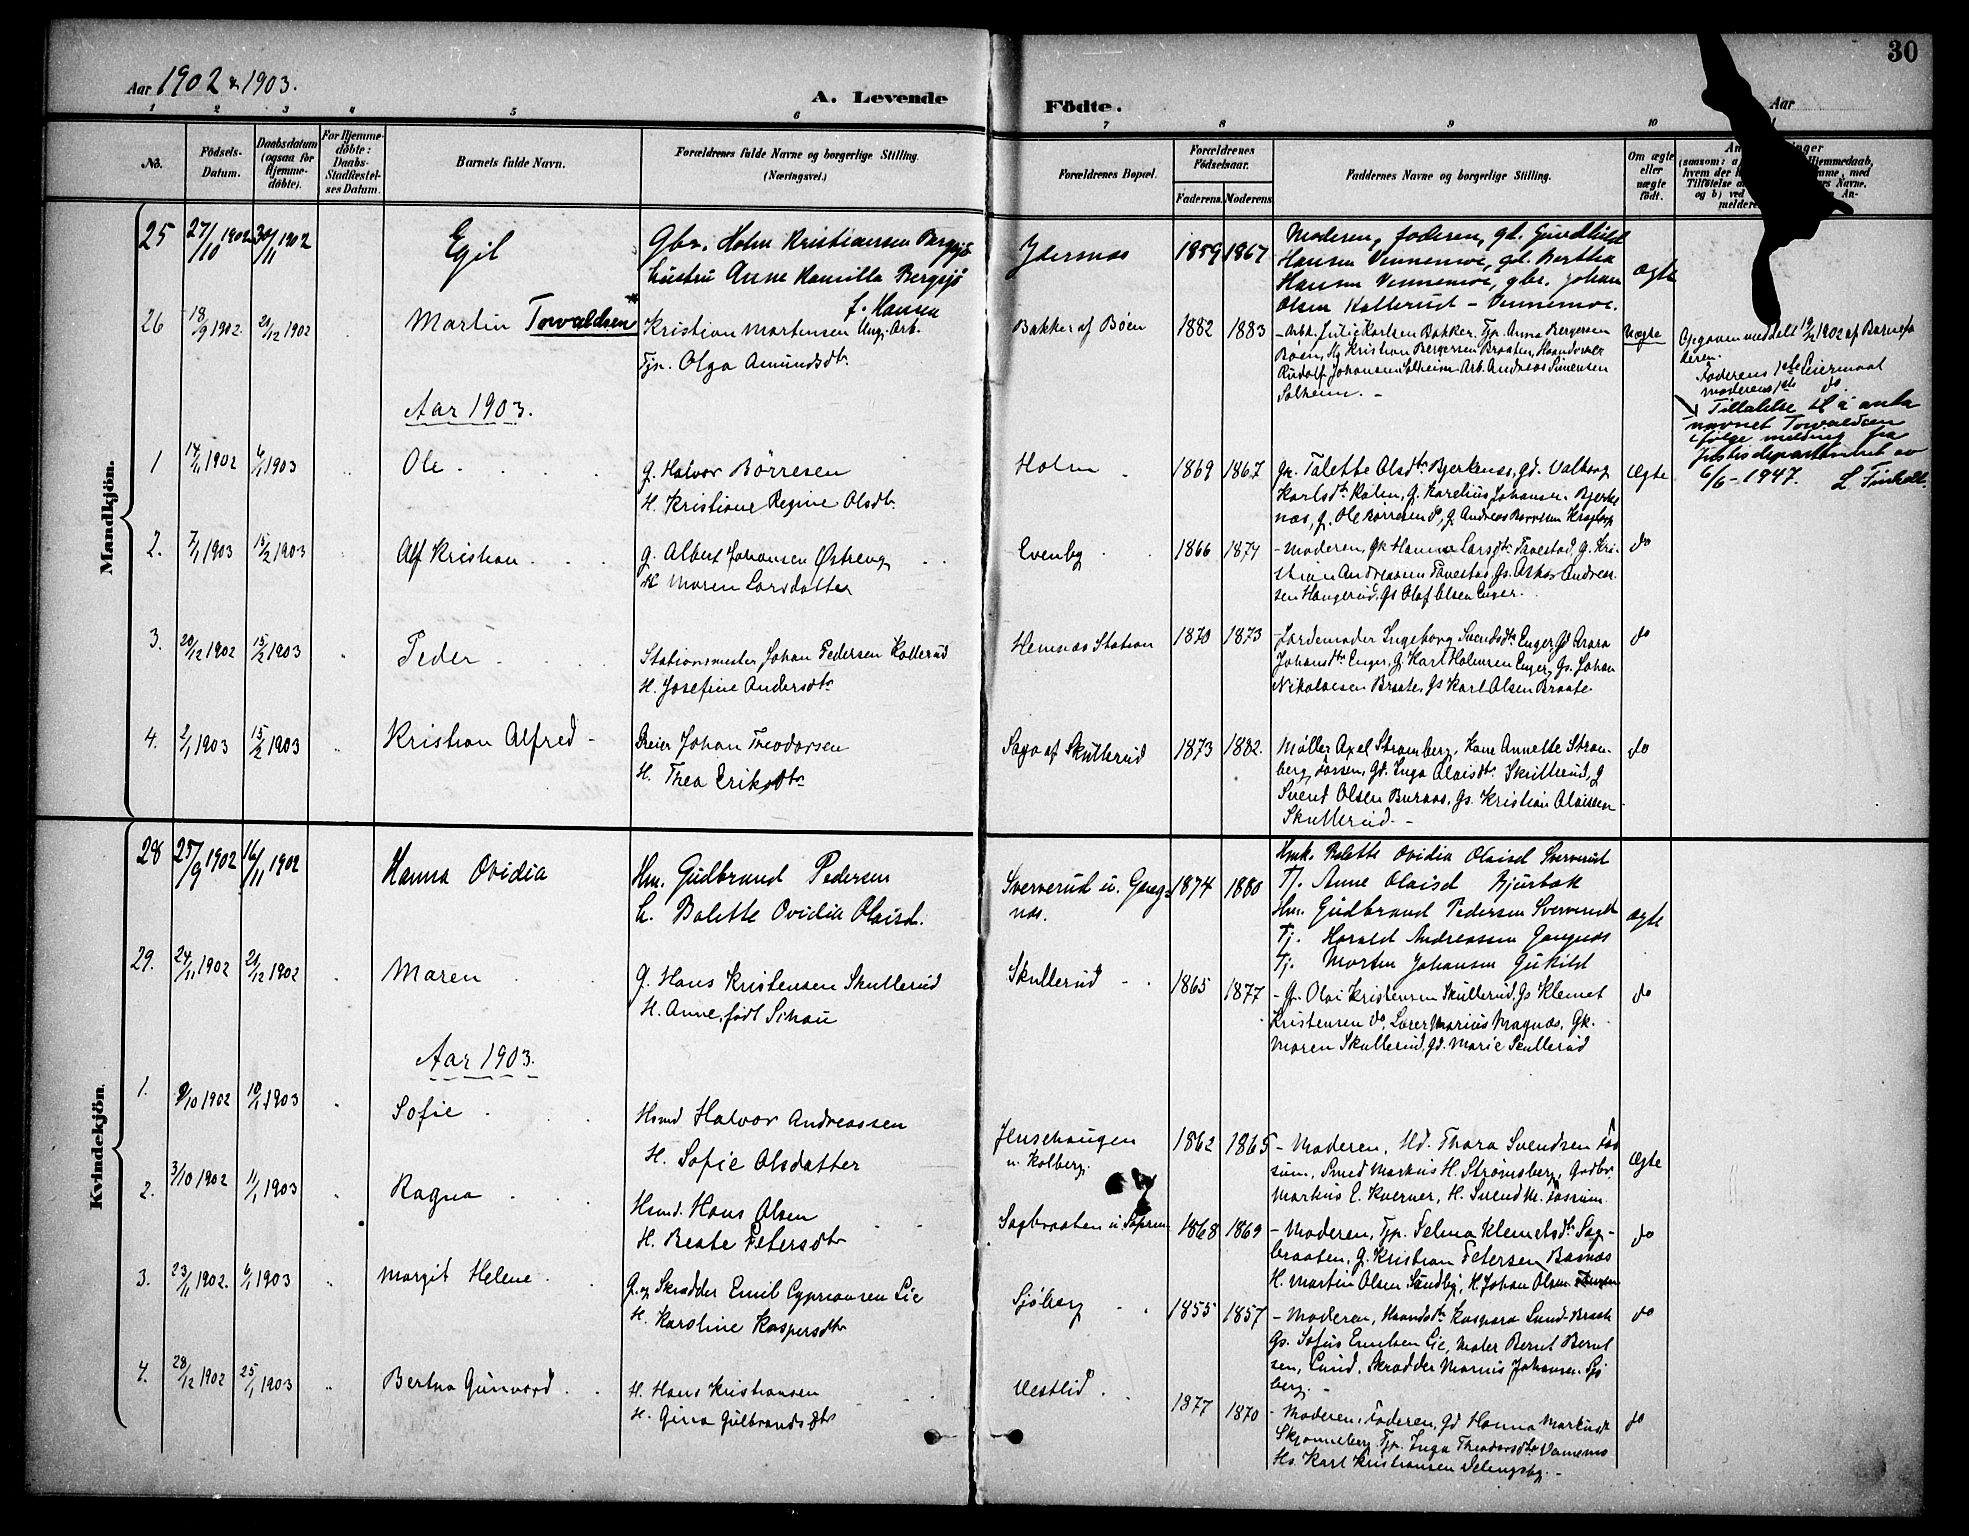 30
Aar 1902 & 1903.
A. Levende
Födte.
Aar
1 2 3 4 5 6 7 8 9 10
No.
Födsels-Datum.
Daabsdatum (ogsaa for Hjemme-döbte).
For Hjemme-döbte: Daabs-Stadfæstel-ses Datum.
Barnets fulde Navn.
Forældrenes fulde Navne og borgerlige Stilling. (Næringsvei.)
Forældrenes Bopæl.
Forældrenes Födselsaar.
Faderens. Moderens.
Faddernes Navne og borgerlige Stilling.
Om ægte eller uægte födt.
Mandkjön.
25 27/10 1902 30/11 1902 Egil
Gbr. Holm Kristiansen Bergsjø
hustru Anne Kamilla Bergsjø
f. Hansen
Ydersnæs 1859 1867
Moderen, faderen, gd. Gundhild
Hansen Vennemoe, gd. Berthe
Hansen Vennemoe, gbr. Johan
Olsen Kallerud - Vennemoe.
ægte
26 18/9 1902. 21/12 1902 Martin Torvaldsen *
Kristian Martensen Ung. Arb.
Tjp. Olga Amundsdtr.
Bakker af Böen 1882 1883
Arb. Julie Karlsen Bakker. Tjp. Anna Bergersen
Böen, Ug Kristian Bergersen Braaten, Haandværker
Rudolf Johansen Solheim Arb. Andreas Simensen
Solheim. -
Uægte
Opgaven meddelt 19/12 1902 af Barnefa
deren.
Faderens 1ste Leiermaal
moderens 1ste do
Tillatelse til å anta
navnet Torvaldsen
ifølge melding fra
Justisdepartementet av
6/6 - 1947.
Aar 1903.
1 14/11 1902 6/1 1903 Ole
G. Halvor Börresen
H. Kristiane Regine Olsdtr.
Holm 1869 1867
Gp. Talette Olsdtr Bjerkenæs, Gd. Valborg
Karlsdtr Holm, G. Karelius Johansen Bjerke
næs, G. Ole Börresen do, G. Andreas Börresen Krogtorp
Ægte
2. 7/1 1903 15/2 1903 Alf Kristian
G. Albert Johansen Østreng
H. Maren Larsdatter
Evenby 1866 1874
- Moderen, Gk Hanna Larsdtr. Tavestad, G. Kri-
stian Andreassen Tavestad, Gs. Oskar Andreas-
sen Haugerud, Gs Olaf Olsen Enger.
do
3. 20/12 1902 15/2 1903 Peder
Stationsmester Johan Pedersen Kallerud
H. Josefine Andersdtr
Hemnæs Station 1870 1873
Jordemoder Ingeborg Svendsdtr Enger, Gd
Johansdtr Enger, G. Karl Halvorsen Enger, Gs. Johan
Nikolaisen Braate, Gs Karl Olsen Braate
do
4. 2/1 1903 15/2 1903 Kristian Alfred -
Johan Theodorsen
H. Thea Eriksdtr
Saga af Skullerud 1873 1882.
Møller Axel Strømberg, Kone Annette Strøm-
berg, Fossen, Gd. Inga Olaisdtr. Skullerud, G
Svend Olsen Buraas, Gs. Kristian Olaisen
Skullerud. -
do
Kvindekjön.
28 25/9 1902 16/11 1902 Hanna Ovidia
Hm. Gudbrand Pedersen
h. Balette Ovidia Olaisd.
Sververud u. Gangnæs. 1874 1880
Hmk. Balette Ovidia Olaisd Sververud
Tj. Anne Olaisd Bjurbæk
Hm. Gudbrand Pedersen Sververud
Tj. Harald Andreassen Gangnæs
Tj. Morten Johansen Gukild
ægte
29. 24/11 1902 21/12 1902 Maren
G. Hans Kristensen Skullerud
H. Anne, født Sihau
Skullerud 1865 1877
- G. Olai Kristensen Skullerud, Gs Klemet
Kristensen do, Lærer Marius Magnæs, Gk.
Maren Skullerud, Gd. Marie Skullerud
do
Aar 1903.
1. 9/10 1902 10/1 1903 Sofie
Hsmd Halvor Andreassen
H. Sofie Olsdatter
Jenschaugen
u. Kolberg. 1862 1865
- Moderen, Hd. Thora Svendsen Fos
sum, Smed Markus H. Strømsberg, Gadbr.
Markus E. Kverner, H. Svend M. Fossum
Ægte
2. 3/10 1902 11/1 1903 Ragna
Hsmd. Hans Olsen
H. Beate Petersdtr
Sagbraaten u. 1868 1869
- Moderen, Tjp. Selma Klemetsdtr. Sag-
braaten, G. Kristian Petersen Basnæs
H. Martin Olsen Sundby, H. Johan Olsen
do
3. 23/11 1902. 6/1 1903 Margit Helene
G. og Skrædder Emil Cypriansen Lie
H. Karoline Kaspersdtr
Sjöberg 1855 1857
- Moderen, Kaspara Lund-Braat
Gs. Sofus Emilsen Lie, Maler Bernt Bernt
sen, Lund, Skrædder Marius Johansen Sjö
berg. -
do
4. 28/12 1902 25/1 1903 Bertha Gunvord
H. Hans Kristiansen
H. Gina Gulbrandsdtr
Vestlid 1877 1870
- Moderen, Faderen, Gd Hanna Markusdtr
Skjønneberg, Tjp. Inga Theodorsdtr
Hs. Karl Kristiansen
do